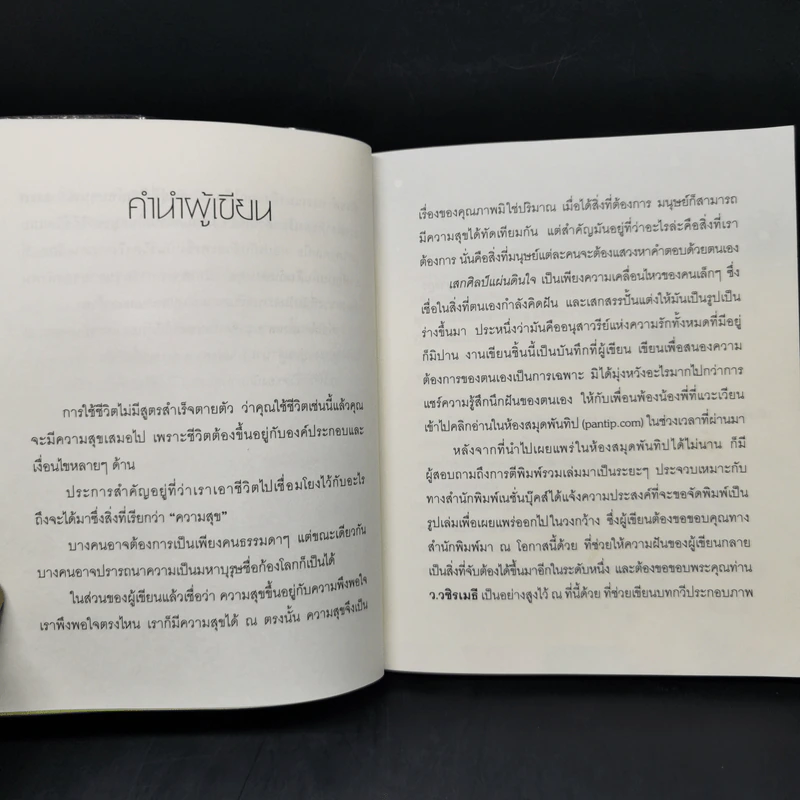 คำนำผู้เขียน
การใช้ชีวิตไม่มีสูตรสำเร็จตายตัว ว่าคุณใช้ชีวิตเช่นนี้แล้วคุณ
จะมีความสุขเสมอไป เพราะชีวิตต้องขึ้นอยู่กับองค์ประกอบและ
เงื่อนไขหลายๆ ด้าน
ประการสำคัญอยู่ที่ว่าเราเอาชีวิตไปเชื่อมโยงไว้กับอะไร
ถึงจะได้มาซึ่งสิ่งที่เรียกว่า “ความสุข”
บางคนอาจต้องการเป็นเพียงคนธรรมดาๆ แต่ขณะเดียวกัน
บางคนอาจปรารถนาความเป็นมหาบุรุษชื่อก้องโลกก็เป็นได้
ในส่วนของผู้เขียนแล้วเชื่อว่า ความสุขขึ้นอยู่กับความพึงพอใจ
เราพึงพอใจตรงไหน เราก็มีความสุขได้ ณ ตรงนั้น ความสุขจึงเป็น
เรื่องของคุณภาพมิใช่ปริมาณ เมื่อได้สิ่งที่ต้องการ มนุษย์ก็สามารถ
มีความสุขได้ทัดเทียมกัน แต่สำคัญมันอยู่ที่ว่าอะไรล่ะคือสิ่งที่เรา
ต้องการ นั่นคือสิ่งที่มนุษย์แต่ละคนจะต้องแสวงหาคำตอบด้วยตนเอง
เสกศิลป์แผ่นดินใจ เป็นเพียงความเคลื่อนไหวของคนเล็กๆ ซึ่ง
เชื่อในสิ่งที่ตนเองกำลังคิดฝัน และเสกสรรปั้นแต่งให้มันเป็นรูปเป็น
ร่างขึ้นมา ประหนึ่งว่ามันคืออนุสาวรีย์แห่งความรักทั้งหมดที่มีอยู่
ก็มิปาน งานเขียนชิ้นนี้เป็นบันทึกที่ผู้เขียน เขียนเพื่อสนองความ
ต้องการของตนเองเป็นการเฉพาะ มิได้มุ่งหวังอะไรมากไปกว่าการ
แชร์ความรู้สึกนึกฝันของตนเอง ให้กับเพื่อนพ้องน้องพี่ที่แวะเวียน
เข้าไปคลิกอ่านในห้องสมุดพันทิป (pantip.com) ในช่วงเวลาที่ผ่านมา
หลังจากที่นำไปเผยแพร่ในห้องสมุดพันทิปได้ไม่นาน ก็มี
ผู้สอบถามถึงการตีพิมพ์รวมเล่มมาเป็นระยะๆ ประจวบเหมาะกับ
ทางสำนักพิมพ์เนชั่นบุ๊คส์ได้แจ้งความประสงค์ที่จะขอจัดพิมพ์เป็น
รูปเล่มเพื่อเผยแพร่ออกไปในวงกว้าง ซึ่งผู้เขียนต้องขอขอบคุณทาง
สำนักพิมพ์มา ณ โอกาสนี้ด้วย ที่ช่วยให้ความฝันของผู้เขียนกลาย
เป็นสิ่งที่จับต้องได้ขึ้นมาอีกในระดับหนึ่ง และต้องขอขอบพระคุณท่าน
ว.วชิรเมธี เป็นอย่างสูงไว้ ณ ที่นี้ด้วย ที่ช่วยเขียนบทกวีประกอบภาพ